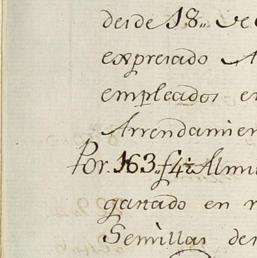 desde 18.. de
expresado A
empleados en
Arrendamien
Por 163.. f 4½ Almu
ganado en
Semillas de